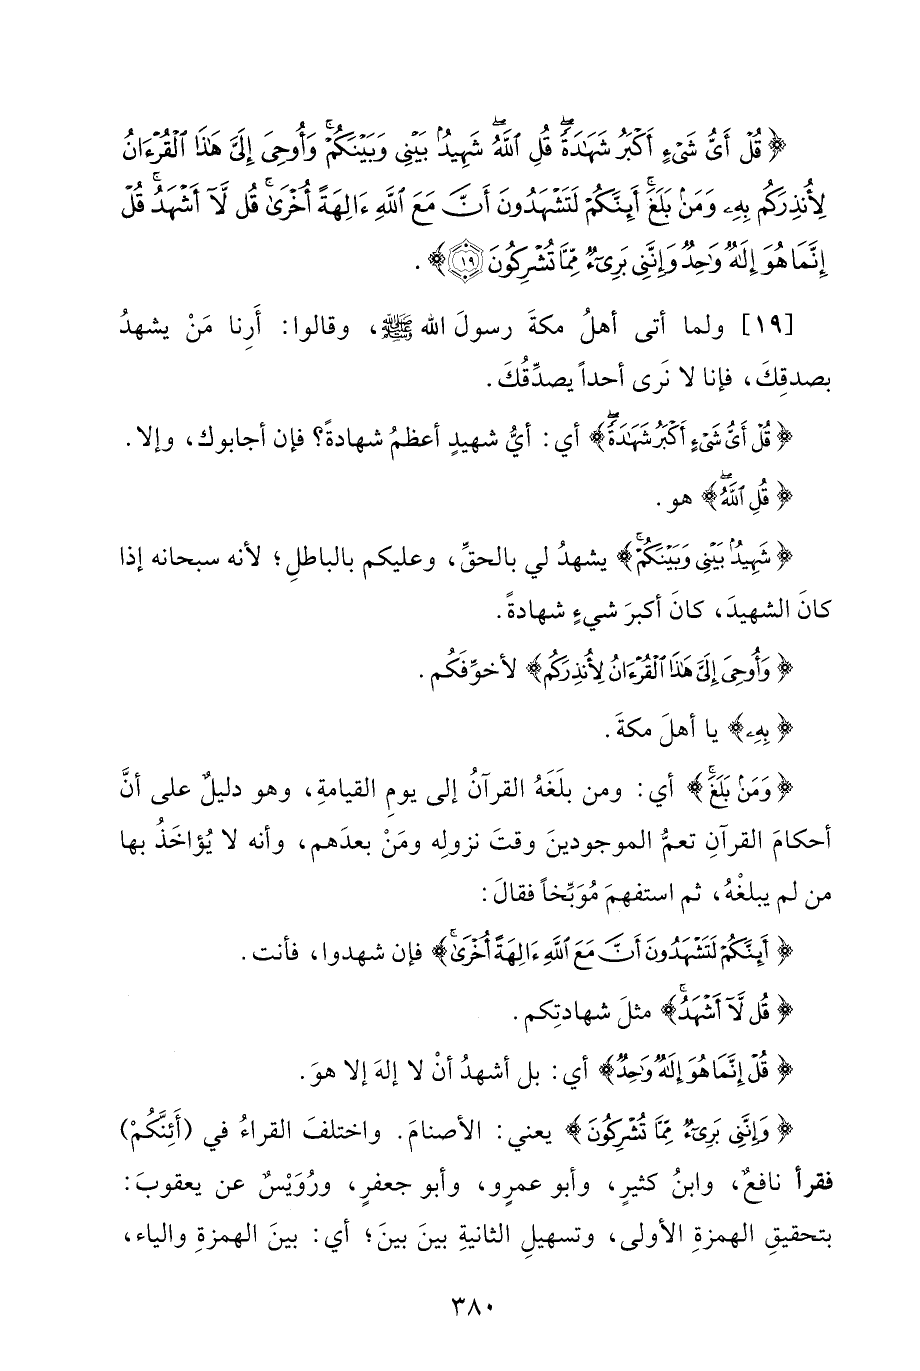 ﴿ قُلْ أَىُّ شَىْءٍ أَكْبَرُ شَهَٰدَةًۖ قُلِ ٱللَّهُۖ شَهِيدٌۢ بَيْنِى وَبَيْنَكُمْۚ وَأُوحِىَ إِلَىَّ هَٰذَا ٱلْقُرْءَانُ
لِأُنذِرَكُم بِهِۦ وَمَنۢ بَلَغَۚ أَئِنَّكُمْ لَتَشْهَدُونَ أَنَّ مَعَ ٱللَّهِ ءَالِهَةً أُخْرَىٰۚ قُل لَّآ أَشْهَدُۚ قُلْ
إِنَّمَا هُوَ إِلَٰهٌ وَٰحِدٌ وَإِنَّنِى بَرِىٓءٌ مِّمَّا تُشْرِكُونَ ١٩ ﴾ .
[١٩] ولما أتى أهلُ مكةَ رسولَ الله ﷺ، وقالوا: أَرِنا مَنْ يشهدُ
بصدقِكَ، فإنا لا نَرى أحداً يصدِّقُكَ.
﴿ قُلْ أَىُّ شَىْءٍ أَكْبَرُ شَهَٰدَةًۖ ﴾ أي: أيُّ شهيدٍ أعظمُ شهادةً؟ فإن أجابوك، وإلا.
﴿ قُلِ ٱللَّهُۖ ﴾ هو.
﴿ شَهِيدٌۢ بَيْنِى وَبَيْنَكُمْۚ ﴾ يشهدُ لي بالحقِّ، وعليكم بالباطلِ؛ لأنه سبحانه إذا
كانَ الشهيدَ، كانَ أكبرَ شيءٍ شهادةً.
﴿ وَأُوحِىَ إِلَىَّ هَٰذَا ٱلْقُرْءَانُ لِأُنذِرَكُم ﴾ لأخوِّفَكُم.
﴿ بِهِۦ ﴾ يا أهلَ مكةَ.
﴿ وَمَنۢ بَلَغَۚ ﴾ أي: ومن بلَغَهُ القرآنُ إلى يومِ القيامةِ، وهو دليلٌ على أنَّ
أحكامَ القرآنِ تعمُّ الموجودينَ وقتَ نزولِه ومَنْ بعدَهم، وأنه لا يُؤاخَذُ بها
من لم يبلغْهُ، ثم استفهمَ مُوَبِّخاً فقالَ:
﴿ أَئِنَّكُمْ لَتَشْهَدُونَ أَنَّ مَعَ ٱللَّهِ ءَالِهَةً أُخْرَىٰۚ ﴾ فإن شهدوا، فأنت.
﴿ قُل لَّآ أَشْهَدُۚ ﴾ مثلَ شهادتِكم.
﴿ قُلْ إِنَّمَا هُوَ إِلَٰهٌ وَٰحِدٌ ﴾ أي: بل أشهدُ أنْ لا إلهَ إلا هوَ.
﴿ وَإِنَّنِى بَرِىٓءٌ مِّمَّا تُشْرِكُونَ ﴾ يعني: الأصنامَ. واختلفَ القراءُ في (أَئِنَّكُمْ)
فقرأ نافعٌ، وابنُ كثيرٍ، وأبو عمرٍو، وأبو جعفرٍ، ورُوَيْسٌ عن يعقوبَ:
بتحقيقِ الهمزةِ الأولى، وتسهيلِ الثانيةِ بينَ بينَ؛ أي: بينَ الهمزةِ والياء،
٣٨٠